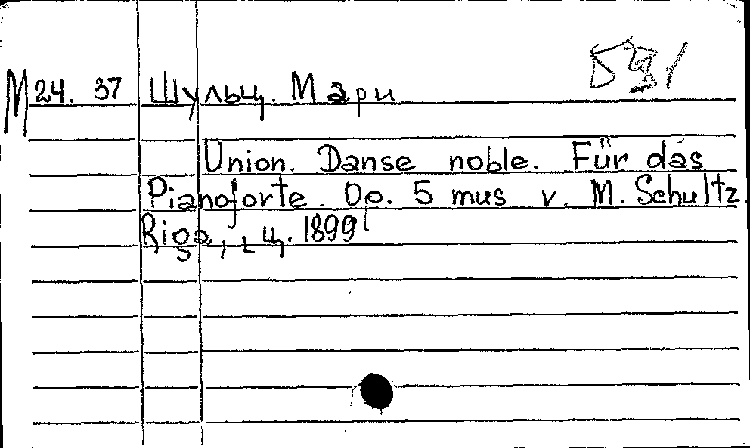 531
М24.37 Шульц. Мари
Union. Danse noble. Für das
Pianoforte. Op. 5 mus v. M. Schultz.
Riga, ц. 1899